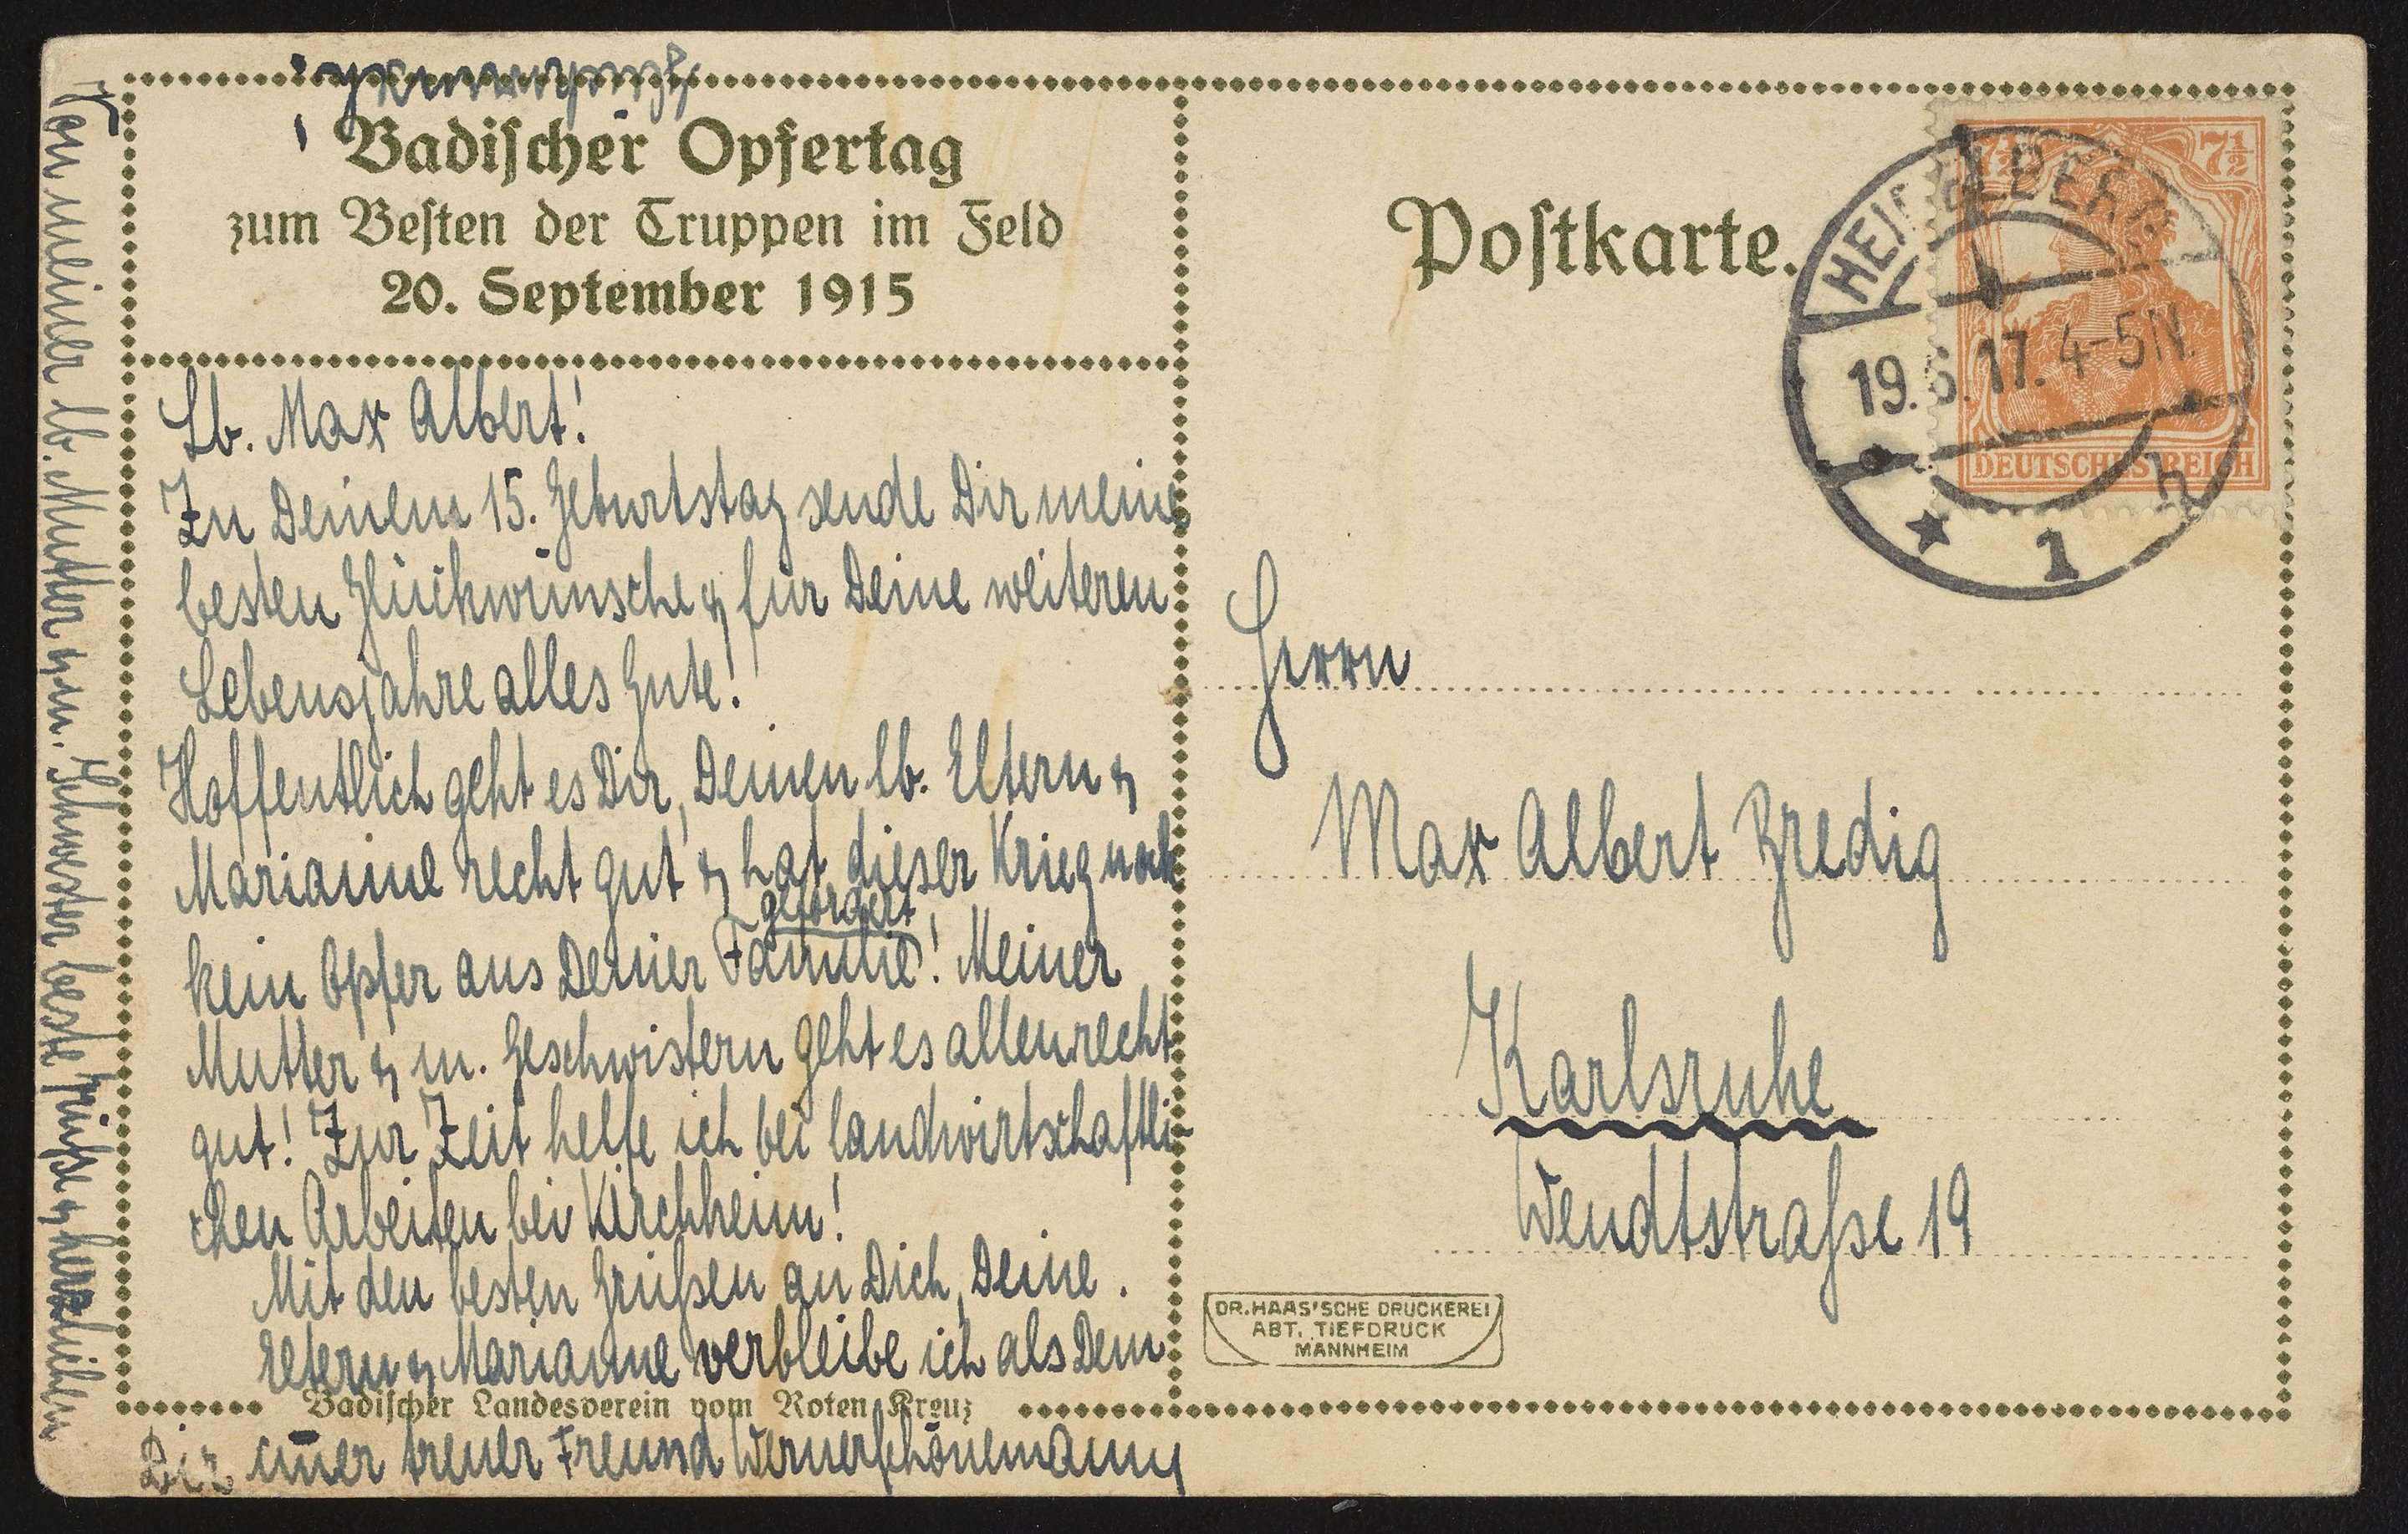 Badischer Opfertag
zum Besten der Truppen im Feld
20. September 1915
Lb. Max Albert!
Zu Deinem 15. Geburtstag sende Dir meine
besten Glückwünsche & für Deine weiteren
Lebensjahre alles Gute!
Hoffentlich geht es Dir, Deinen lb. Eltern &
Marianne recht gut & hat dieser Krieg noch
gefordert
kein Opfer aus Deiner Familie! Meiner
Mutter & m. Geschwistern geht es allen recht
gut! Zur Zeit helfe ich bei landwirtschaftli-
chen Arbeiten bei Kirchheim!
Mit den besten Grüßen an Dich, Deine
Eltern & Marianne verbleibe ich als Dein
Badischer Landesverein vom Roten Kreuz
Dir treuer Freund Werner Schönemann
Von meiner lb. Mutter & m. Schwester beste Grüße &
Postkarte.
HEIDELBERG
19.6.17. 4-5N.
* 1 h
7½ 7½
DEUTSCHES REICH
Herrn
Max Albert Bredig
Karlsruhe
Wendtstraße 19
DR. HAAS'SCHE DRUCKEREI
ABT. TIEFDRUCK
MANNHEIM